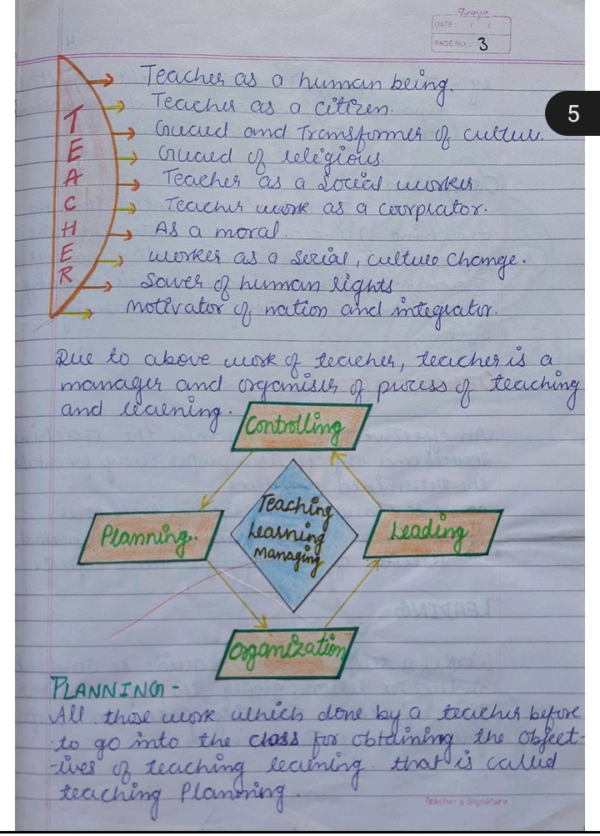 DATE: / /
PAGE NO.: 3
5
TEACHER
Teacher as a human being.
Teacher as a citizen.
Guard and Transformer of culture.
Guard of religious.
Teacher as a Social worker.
Teacher work as a
As a moral.
worker as a serial, culture change.
Saver of human rights
motivator of nation and integrator.
Due to above work of teacher, teacher is a
manager and organiser of process of teaching
and learning.
Controlling
Teaching
Learning
managing
Planning.
Leading
Organization
PLANNING -
All those work which done by a teacher before
to go into the class for obtaining the object-
-tives of teaching learning. that is called
teaching Planning.
Teacher's Signature